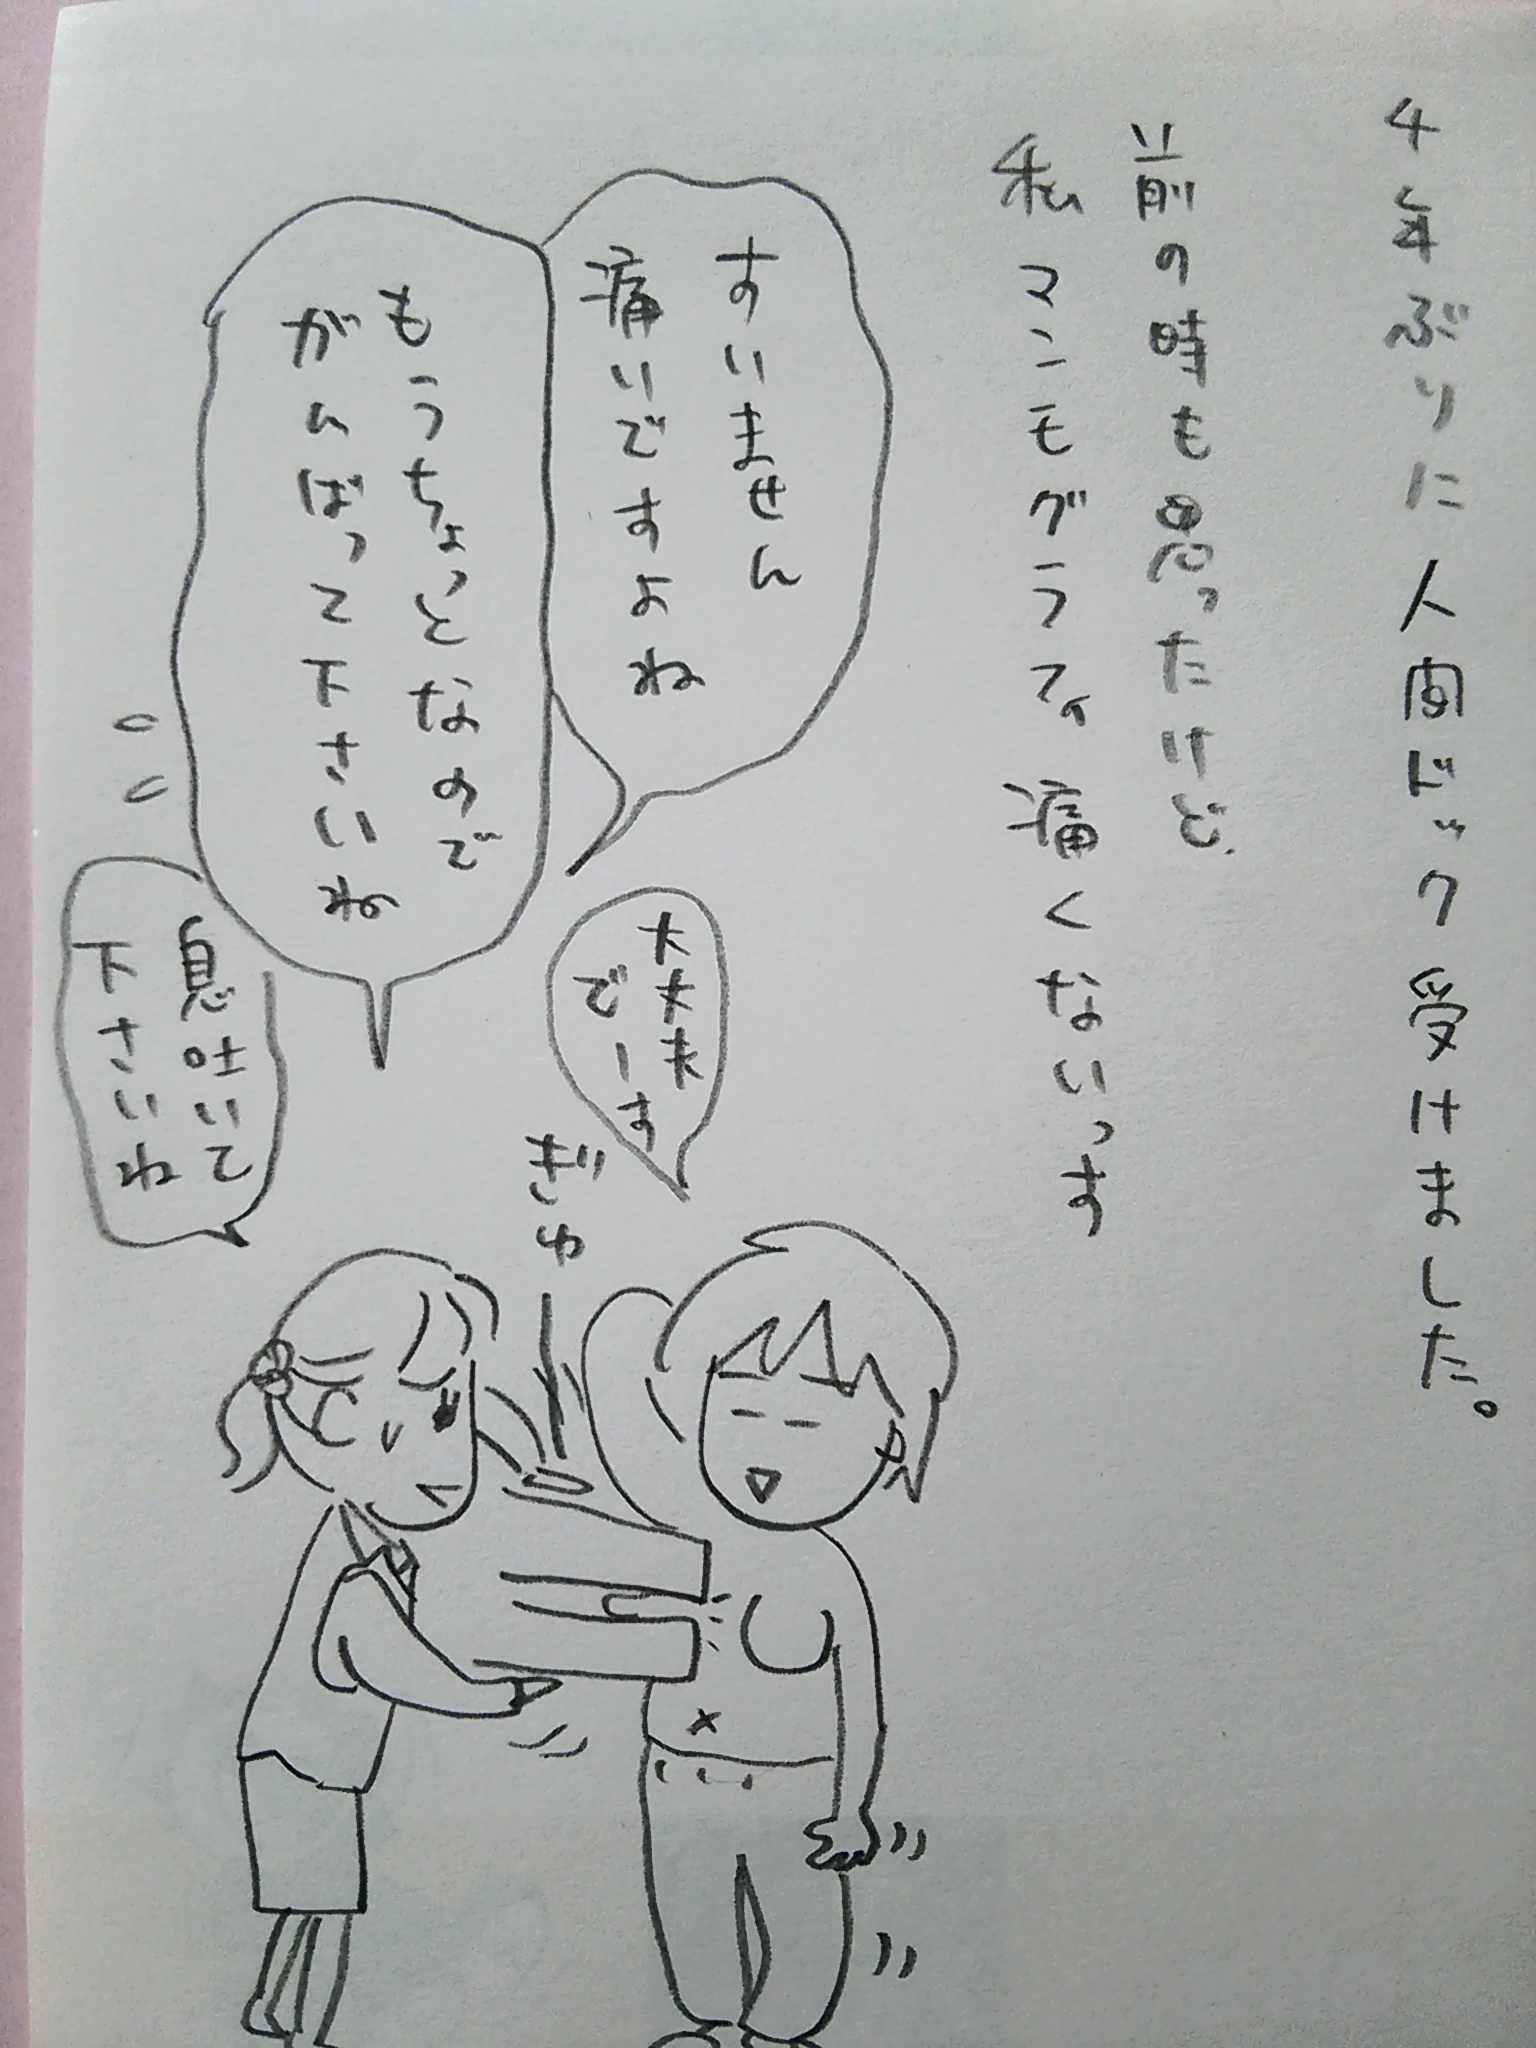 4年ぶりに人間ドック受けました。
前の時も思ったけど、
私マンモグラフィ痛くないっす
すいません
痛いですよね
もうちょっとなので
がんばって下さいね
大丈夫
でーす
息吐いて
下さいね
ぎゅ